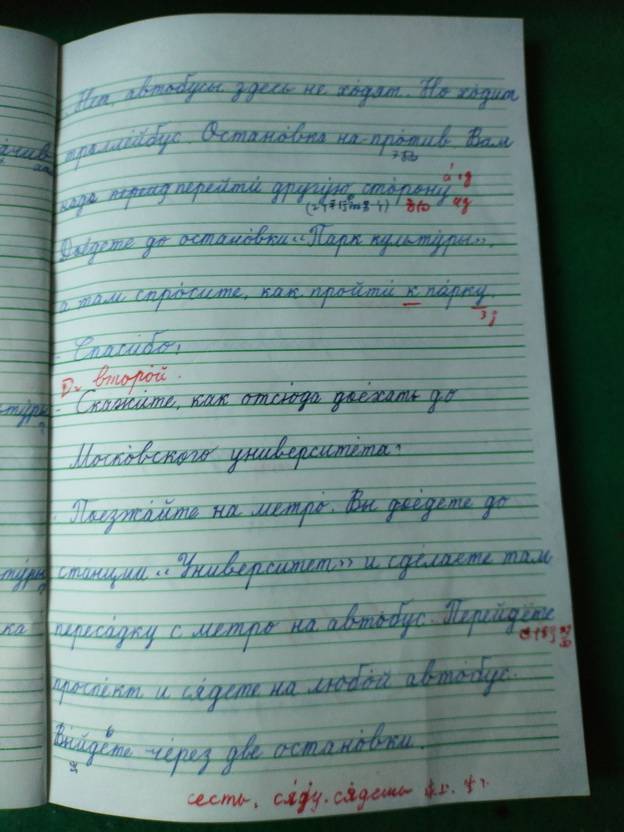 - Нет, автобусы здесь не хо́дят. Но хо́дит
троллейбус. Остано́вка на про́тив. Вам
надо перейти́ другу́ю сто́рону
Дое́дете до остано́вки «Парк культу́ры»,
а там спро́сите, как пройти́ к па́рку.
- Спаси́бо!
второ́й.
- Скажи́те, как отсю́да дое́хать до
Моско́вского университе́та?
- Поезжа́йте на метро́. Вы дое́дете до
станции «Университет» и сде́лаете там
переса́дку с метро на авто́бус. Перейдёте
проспе́кт и ся́дете на любо́й авто́бус.
Вы́йдете че́рез две остано́вки.
сесть, ся́ду, ся́дешь